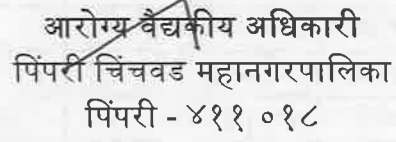 आरोग्य वैद्यकीय अधिकारी
पिंपरी चिंचवड महानगरपालिका
पिंपरी - ४११ ०१८